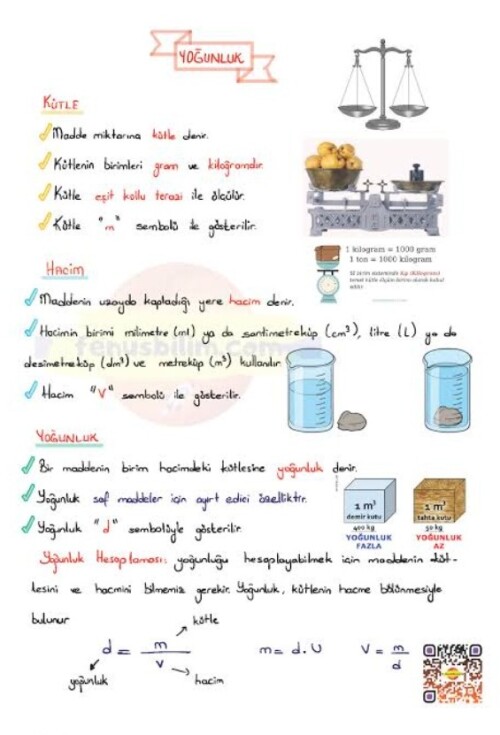 YOĞUNLUK
KÜTLE
Madde miktarına kütle denir.
Kütlenin birimleri gram ve kilogramdır.
Kütle eşit kollu terazi ile ölçülür.
Kütle "m" sembolü ile gösterilir.
1 kilogram = 1000 gram
1 ton = 1000 kilogram
SI birim sisteminde kg (Kilogram)
temel kütle ölçüm birimi olarak kabul
edilir
HACİM
Maddenin uzayda kapladığı yere hacim denir.
Hacimin birimi milimetre (ml) ya da santimetreküp (cm³), litre (L) ya da
desimetreküp (dm³) ve metreküp (m³) kullanılır
fenusbilim.com
Hacim "V" sembolü ile gösterilir.
YOĞUNLUK
Bir maddenin birim hacimdeki kütlesine yoğunluk denir.
Yoğunluk saf maddeler için ayırt edici özelliktir.
Yoğunluk "d" sembolüyle gösterilir.
1 m³
demir kutu
400 kg
YOĞUNLUK
FAZLA
1 m³
tahta kutu
50 kg
YOĞUNLUK
AZ
Yoğunluk Hesaplaması: yoğunluğu hesaplayabilmek için maddenin küt-
lesini ve hacmini bilmemiz gerekir. Yoğunluk, kütlenin hacme bölünmesiyle
bulunur
kütle
d = m / v
m = d.υ
V = m / d
yoğunluk
hacim